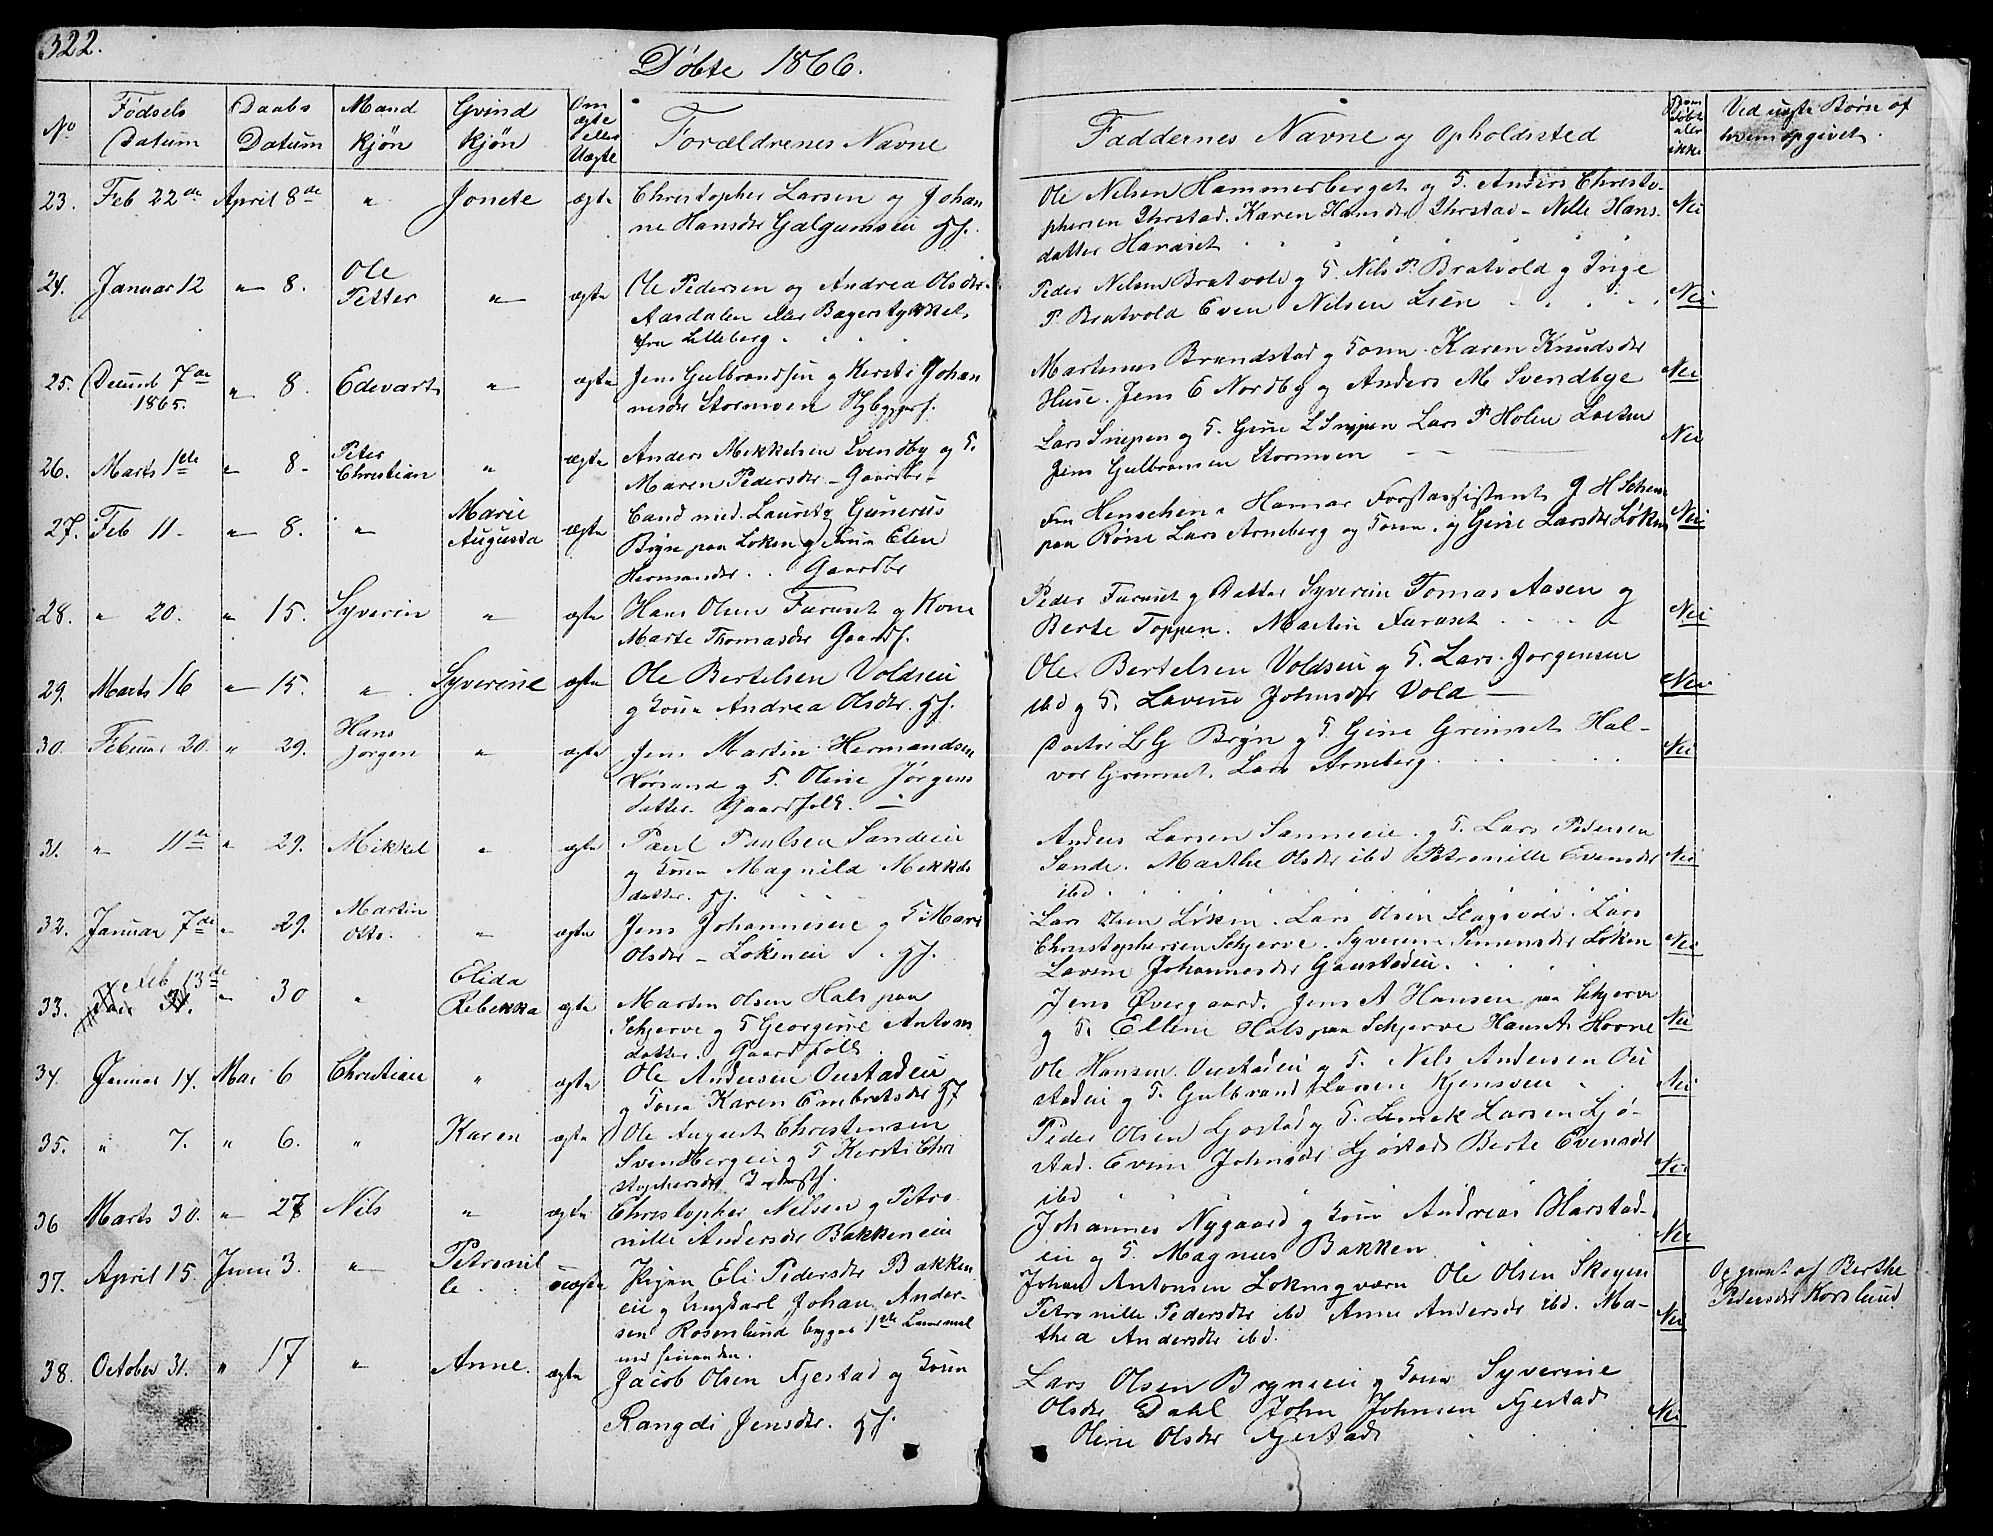 322.
Døbte 1866.
No
Fødsels Datum
Daabs Datum
Mand kjøn
Qvind kjøn
Om ægte eller Uægte
Forældrenes Navne
Faddernes Navne og Opholdssted
døbt eller ikke
Ved uægte Børn af hvem opgivet.
23. Feb 22de April 8de " Jonete ægte Christopher Larsen og Johan
ne Hansdr Galgumseie Hf.
Ole Nilsen Hammerberget og H. Anders Christo- Nei
phersen Karen Hansdr - Nille Hans-
datter Haraset
24. Januar 12 " 8. Ole Petter " ægte Ole Pedersen og Andrea Olsdr
Aasdalen eller Bagerstykket
fra Lilleberg.
Peder Nilsen Bratvold og H. Nils P. Bratvold og Inge
P. Bratvold Even Nilsen Lien Nei
25. Decemb 7de 1865. " 8. Edevart " ægte Jens Gulbrandsen og Kersti Johan
nesdr Stormoen
Martinus Brandstad og Kone Karen Knudsdr
Huse. Jens E Nordby og Anders M Svendbye Nei
26. Marts 1ste " 8. Peter Christian " ægte Anders Mikkelsen Svendby og H.
Maren Pedersdr - Gaardbr -
Lars Snepen og H. Gine L Snepen Lars P Holen
Jens Gulbransen Stormoen Nei
27. Feb 11. " 8. " Marie Augusta ægte Cand med. Lauretz Gunerus
Bryn paa Løken og Kone Elen
Hermandr . . Gaardbr
Fru Henschen Hamar Forstassistent J H Schen
paa Røne Lars Arneberg og Kone. og Gine Larsdr Løken Nei
28. " 20. " 15. Syverin " ægte Hans Olsen Furuset og Kone
Marte Thomasdr Gaardf.
Peder Furuset og Datter Syverin Tomas Aasen og
Berte Toppen. Martin Furuset Nei
29. Marts 16 " 15. " Syverine ægte Ole Bertelsen Voldseie
og Kone Andrea Olsdr. Hf.
Ole Bertelsen Voldseie og H. Lars Jorgensen
ibd og H. Lovene Johnsdr Vold Nei
30. Febuar 20. " 29. Hans Jorgen " ægte Jens Martin Hermandsen
Hørsand og H. Oline Jørgens
datter. Gaardfolk.
Doctor L G Bryn og H. Gine Grimset Hal-
vor Grimset. Lars Arneberg. Nei
31. " 11te " 29. Mikkel " ægte Paul Paulsen Sandeeie
og Kone Magnild Mikkels
datter. Hf.
Anders Larsen Sanneeie. og H. Lars Pedersen
Sande. Marthe Olsdr ibd Petronille Evensdr Nei
ibd.
32. Januar 7de " 29. Martin Otto. " ægte Jens Johanneseie og H Mari
Olsdr - Lokeneie Hf.
Lars Olsen Løken. Lars Olsen Slagsvold. Lars
Christophersen Schjerve. Syverine Simensdr Løken Nei
Lovine Johannesdr Gaustadeie.
33. Feb 13de " 30 " Elida Rebekka ægte Martin Olsen Hals paa
Schjerve og H Georgine Antons
datter. Gaardfolk
Jens Øvergaard. Jens A Hansen paa Schjerve
og H. Elline Hals paa Schjerve Hans A Hovne Nei
34. Januar 14. Mai 6 Christian " ægte Ole Andersen Oustadeie
og Kone Karen Embretsdr Hf
Ole Hansen Oustadeie og H. Nils Andersen Ou
stadeie og H. Gulbrand Larsen Kjensveie Nei
35. " 7. " 6. " Karen ægte Ole August Christensen
Svendbergeie og H Kersti Chri
stophersdr Inderstf.
Peder Olsen Ljostad og H. Larsen Ljø-
stad. Even Johnsdr Ljøstad Berte Evensdr Nei
ibd
36 Marts 30. " 27 Nils " ægte Christopher Nilsen og Petro
nille Andersdr Bakkeneie
Johannes Nygaard og Kone Andreas Harstad-
eie og H. Magnus Bakken Nei
37. April 15. Juni 3. " Petronil le uægte Pigen Eli Pedersdr Bakken
eie og Ungkarl Johan Ander-
sen Rosenlund begges 1ste Leiermaal
med hinanden.
Johan Antonsen Lokensqværn Ole Olsen Skogen
Petronille Pedersdr ibd Anne Andersdr ibd. Ma-
thea Andersdr ibd. Nei
Opgivet af Berthe
Pedersdr Korslund
38. October 31. " 17 " Anne. ægte Jacob Olsen Fjestad og Kone
Rangdi Jensdr. Hf.
Lars Olsen Bryneeie og Kone Syverine
Olsdr Dahl John Johnsen Fjestad Nei
Oline Olsdr Fjestad